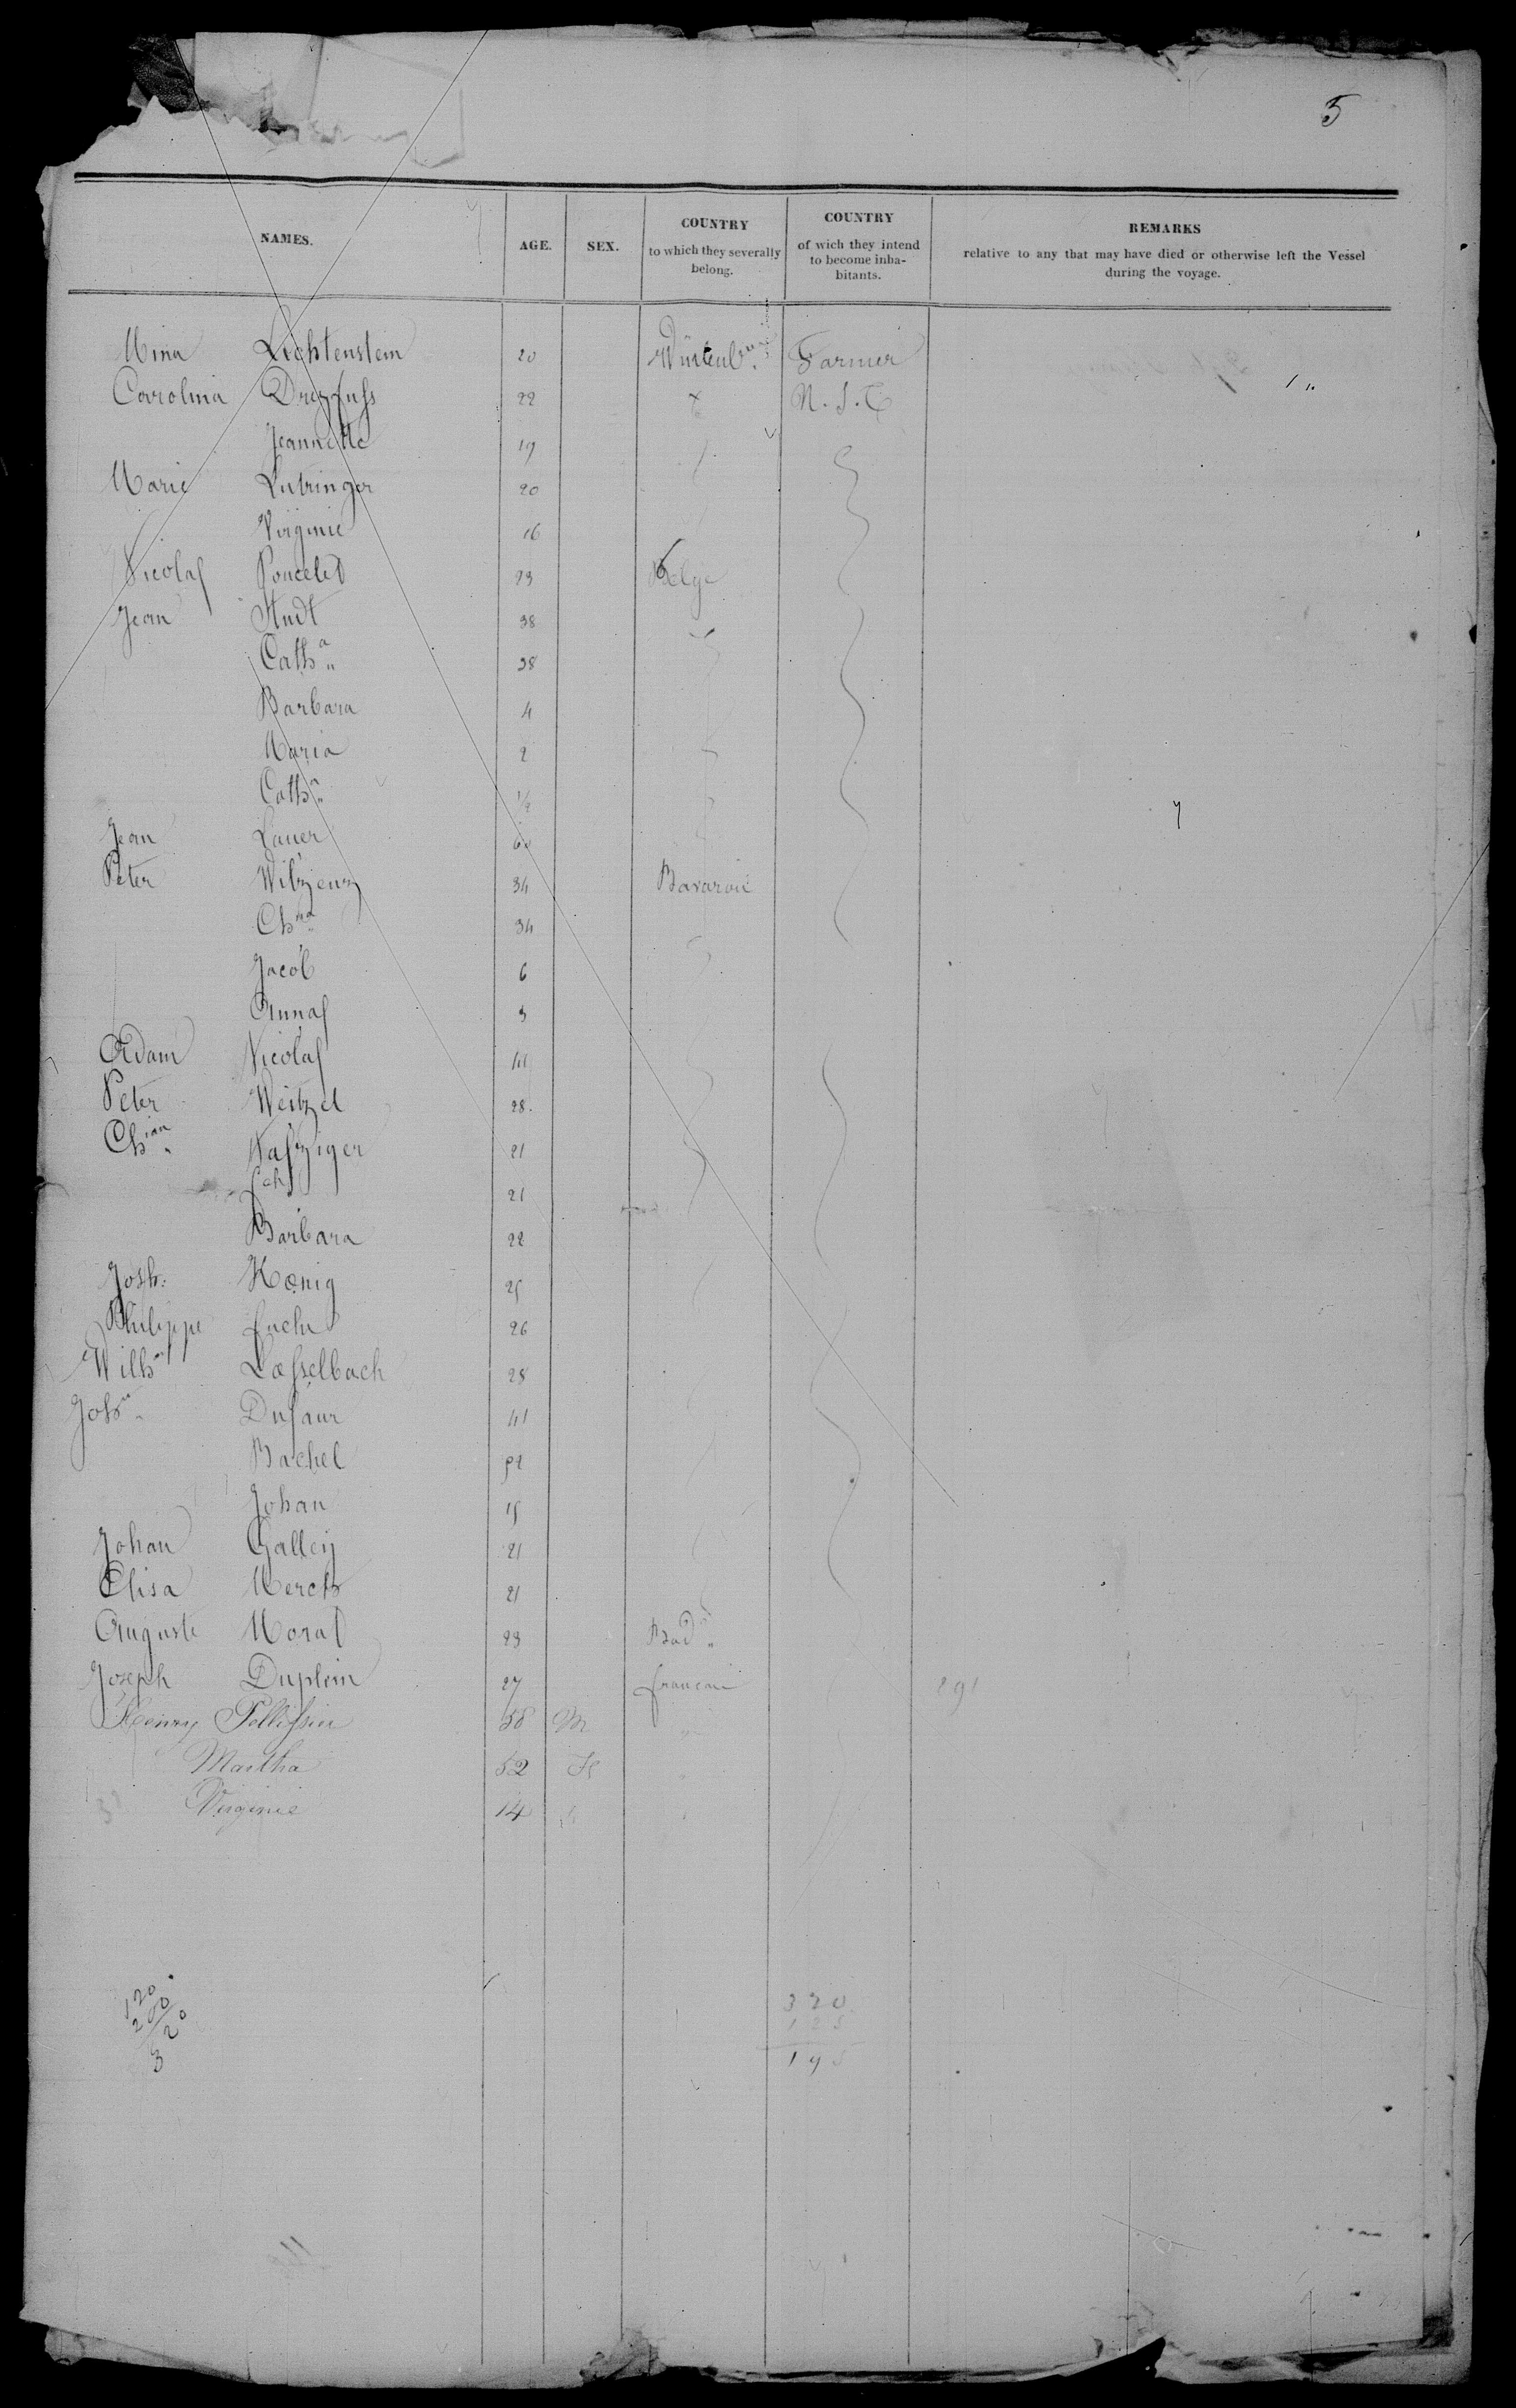 5
NAMES. AGE. SEX. COUNTRY to which they severally belong. COUNTRY of wich they intend to become inhabitants. REMARKS relative to any that may have died or otherwise left the Vessel during the voyage.
Mina Lichtenstein 20 Farmer
Carolina Dreyfuss 22
Jeannette 19
Marie Lutringer 20
Virginie 16
Nicolas Poncelet 23 Belge
Jean Studt 38
Catha 38
Barbara 4
Maria 2
Catha 1/2
Jean Lauer
Peter 34 Bavaroie
34
Jacob 6
Annas 3
Adam Nicolas 41
Peter Weitzel 28
Chian Nafziger 21
21
Barbara 22
Josh. Kœnig 25
Philippe 26
Wilhm Lasselbach 28
Johan Dusaur 41
Rachel 52
Johan 15
Johan Galley 21
Elisa Merck 21
Auguste Morat 23 Bad
Joseph Duplein 27 francais 291
Henry Pellissier 58 M
Martha 52
Virginie 14
120
200
320
320
125
195